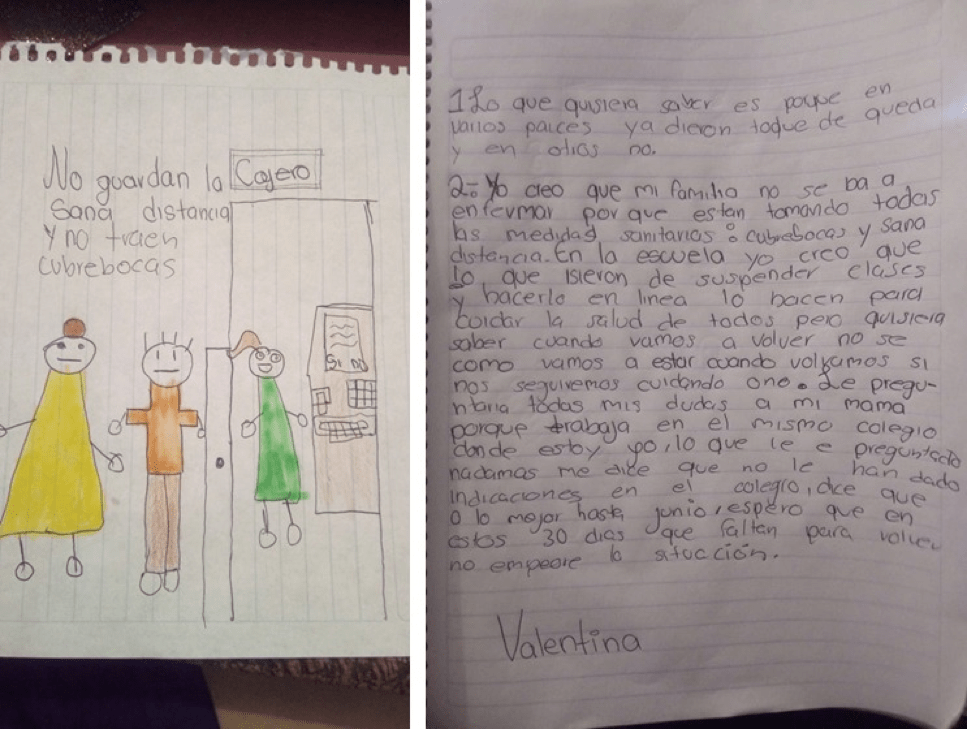 No guardan la
Sana distancia
Y no traen
cubrebocas
Cajero
SI NO
1 Lo que quisiera saber es poque en
varios paices ya dieron toque de queda
y en otros no.
2=Yo creo que mi familia no se ba a
enfermar por que estan tomando todas
las medidas sanitarias: cubrebocas y sana
distancia. En la escuela yo creo que
lo que isieron de suspender clases
y hacerlo en linea lo hacen para
cuidar la salud de todos pero quisiera
saber cuando vamos a volver no se
como vamos a estar cuando volvamos si
nos seguiremos cuidando ono. Le pregu-
ntaria todas mis dudas a mi mama
porque trabaja en el mismo colegio
donde estoy yo, lo que le e preguntado
nadamas me dice que no le han dado
indicaciones en el colegio, dice que
a lo mejor hasta junio, espero que en
estos 30 dias que faltan para volver
no empeore la situcción.
Valentina